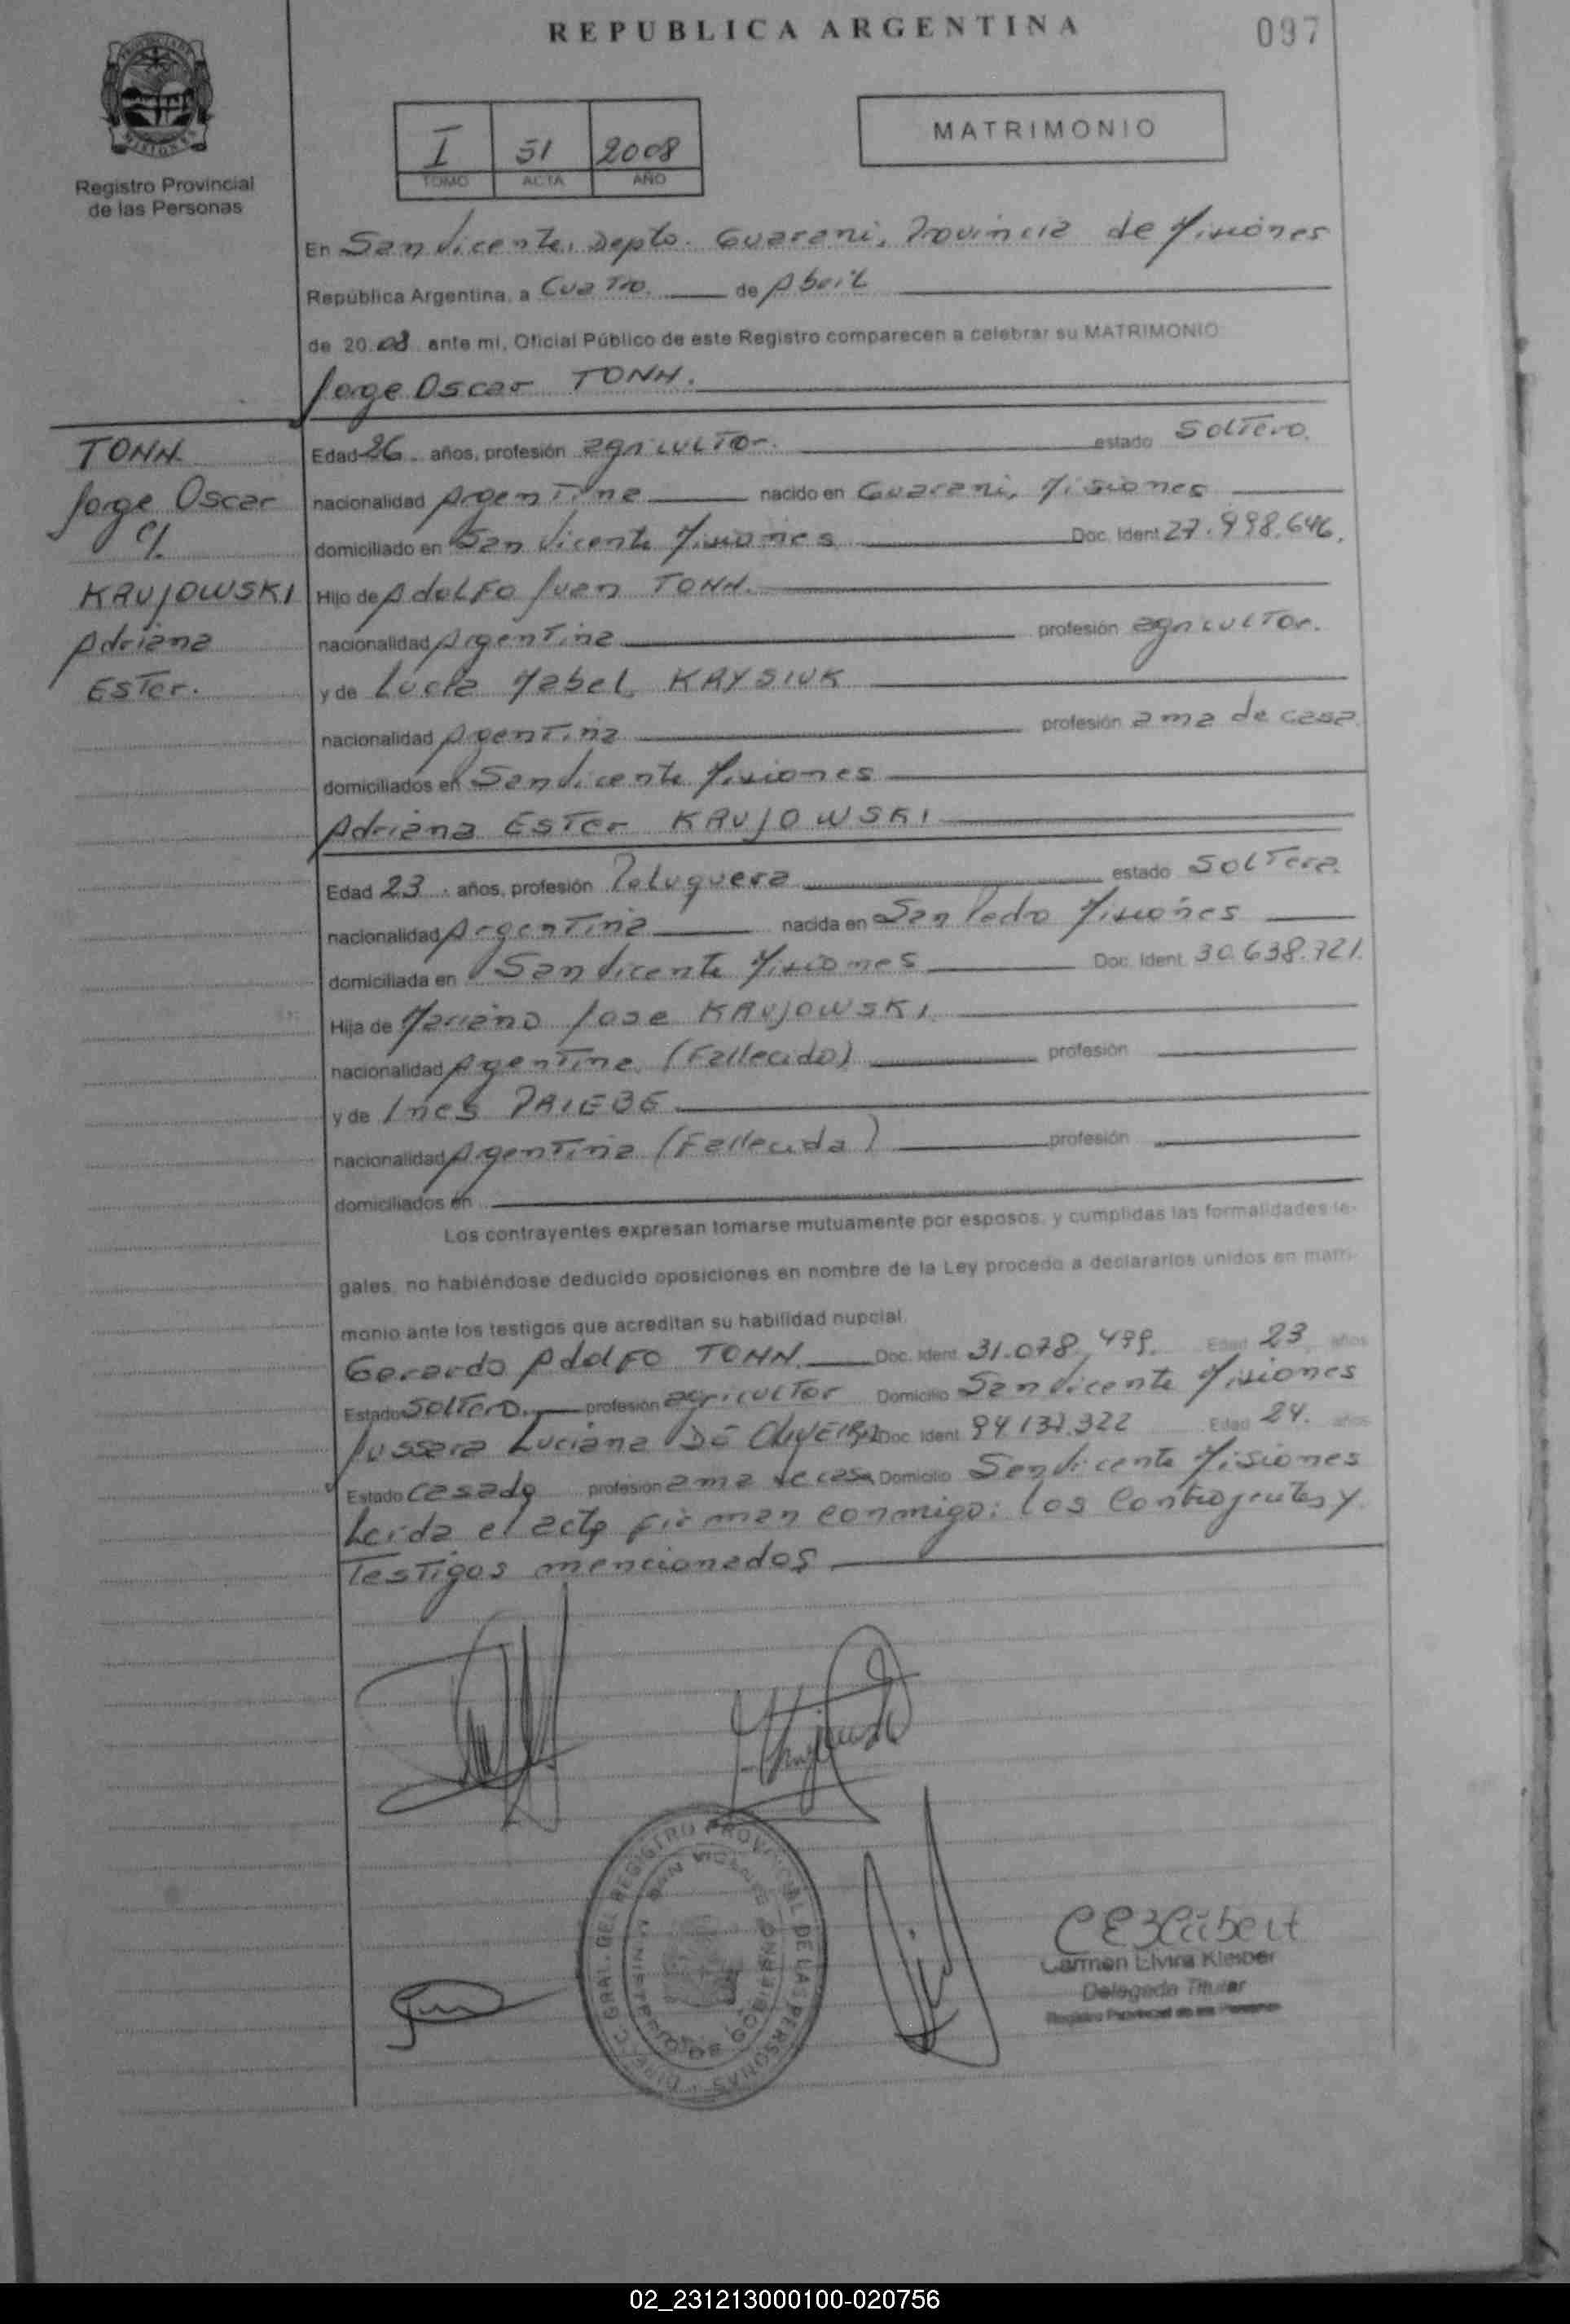 REPUBLICA ARGENTINA
097
PROVINCIA DE MISIONES
Registro Provincial
de las Personas
I 51 2008
TOMO ACTA AÑO
MATRIMONIO
En San Vicente, Depto. Guarani, Provincia de Misiones
República Argentina, a Cuatro. de Abril
de 2008 ante mi, Oficial Público de este Registro comparecen a celebrar su MATRIMONIO
Jorge Oscar TONN.
TONN
Jorge Oscar
c/.
KRUJOWSKI
Adriana
Ester.
Edad 26 años, profesión agricultor. estado Soltero.
nacionalidad Argentina nacido en Guarani, Misiones
domiciliado en San Vicente Misiones Doc. Ident 27.998.646.
Hijo de Adolfo Juan TONN.
nacionalidad Argentina profesión agricultor.
y de Lucia Mabel KRYSIUK
nacionalidad Argentina profesión ama de casa
domiciliados en San Vicente Misiones
Adriana Ester KRUJOWSKI
Edad 23 años, profesión Peluquera estado Soltera.
nacionalidad Argentina nacida en San Pedro Misiones
domiciliada en San Vicente Misiones Doc. Ident. 30.638.721.
Hija de Mariano Jose KRUJOWSKI
nacionalidad Argentina (Fallecido) profesión
y de Ines PRIEBE
nacionalidad Argentina (Fallecida) profesión
domiciliados en
Los contrayentes expresan tomarse mutuamente por esposos, y cumplidas las formalidades le-
gales, no habiéndose deducido oposiciones en nombre de la Ley procedo a declararlos unidos en matri-
monio ante los testigos que acreditan su habilidad nupcial.
Gerardo Adolfo TONN Doc. Ident. 31.078.499. Edad 23 años
Estado Soltero. profesión agricultor Domicilio San Vicente Misiones
Jussara Luciana DE OLIVEIRA Doc. Ident. 94.137.322 Edad 24. años
Estado Casada profesión ama de casa Domicilio San Vicente Misiones
Leida el acta firman conmigo: los Contrayentes y
Testigos mencionados
DIREC. GRAL. DEL REGISTRO PROVINCIAL DE LAS PERSONAS
SAN VICENTE
MINISTERIO DE GOBIERNO
Carmen Elvira Kleiber
Delegada Titular
Registro Provincial de las Personas
02_231213000100-020756